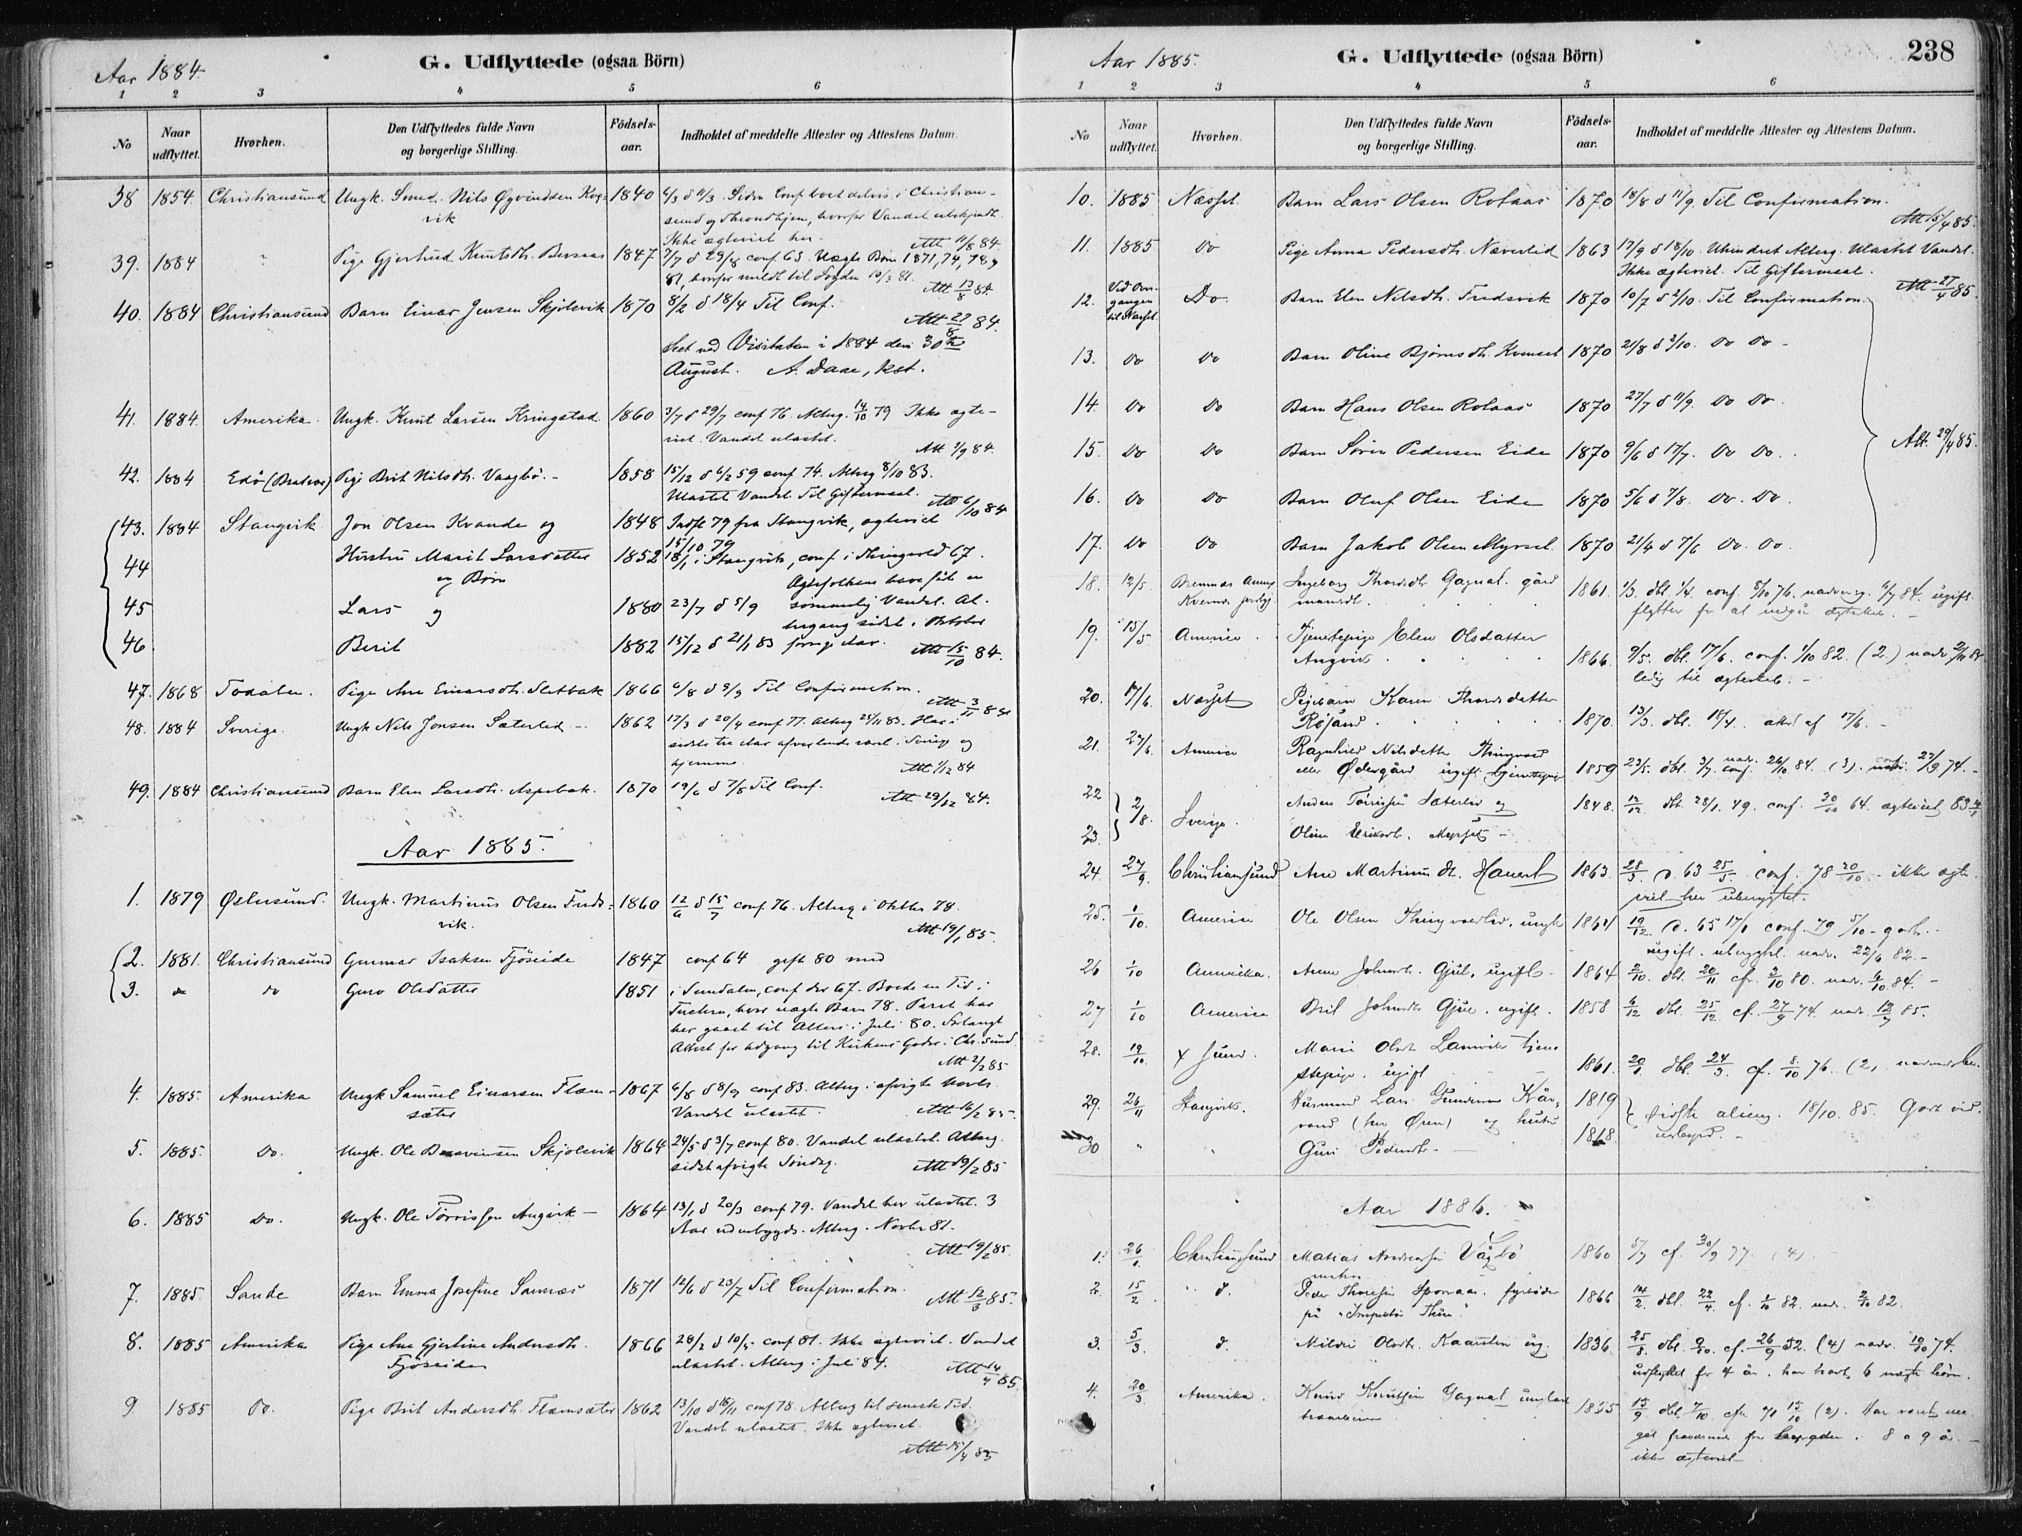 Aar 1884.
G. Udflyttede (ogsaa Börn)
1 2 3 4 5 6
No
Naar udflyttet.
Hvorhen.
Den Udflyttedes fulde Navn og borgerlige Stilling.
Födsels-aar.
Indholdet af meddelte Attester og Attestens Datum.
38 1854 Christiansund Ungk. Smed. Nils Øyvindsen 1840
rik
Ikke ægteviet her. Att 11/8 84.
39. 1884 " Pige Gjertrud Knutsdh. Bersaas 1847 7/7 d 29/8 conf 63. Uægte Børn 1871, 74, 78 og
81, Att 13/8 84.
40. 1884 Christiansund Barn Einar Jensen Skjølsvik 1870 8/2 d 18/4 Til Conf.
Att 27/8 84.
Seet ved Visitatsen i 1884 den 30te
August. A. Daae, kst.
41. 1884. Amerika. Ungk. Knut Larsen Kringstad 1860 3/7 d 29/7 conf 76. Alterg. 14/10 79 Ikke ægte-
viet. Vandel ulastet.
Att 1/9 84.
42. 1884 Edö Pige Brit Nilsdh. Vaagbö. - 1858 15/12 d 6/2 59 conf 74. Alterg 8/10 83.
Ulastet Vandel Til Giftermaal. Att 6/10 84
43. 1884 Stangvik Jon Olsen Kvande og 1848 Indfl 79 fra Stangvik, ægteviet
15/10 79
44 Hustru Marit Larsdatter 1852 18/1 i Stangvik, conf. i Thingvold 67.
og Børn Ægtefolkene have ført en
45 Lars og 1880 23/7 d 5/9 sømmelig Vandel. Al-
tergang sidst i Oktober
46 Berit 1882 15/12 d 21/1 83 forrige Aar. Att 15/10 84.
47. 1868 Todalen. Pige Ane Einarsdh. Sletbak 1866 6/8 d 9/9 Til Confirmation.
Att 3/11 84
48. 1884 Sverige. Ungk Nils Jonsen Sæterlid - 1862 17/3 d 20/4 conf 77. Alterg 24/11 83. Har i
sidste tre Aar afvexlende været i Sverige og
hjemme. Att 1/12 84
49. 1884 Christiansund Barn Elen Larsdh. Aspebak. 1870 19/6 d 7/8 Til Conf.
Att 29/12 84.
Aar 1885.
1. 1879 Østersund. Ungk. Martinus Olsen Freds- 1860 12/6 d 15/7 conf 76. Alterg i Oktbr 78.
vik. Att 19/1 85.
2. 1881. Christiansund Gunnar Isaksen Fjöseide 1847 conf 64 gift 80 med
3. " do Guro Olsdatter 1851 i Sundalen, conf der 67. Boede en Tid i
Tustern, hvor uægte Barn 78. Parret har
her gaaet til Alters i Juli 80. Forlangt
Attest for Adgang til Kirkens Goder i Chr.sund
Att 2/2 85
4. 1885. Amerika Ungk Samuel Einarsen Flem- 1867 6/8 d 8/9 conf 83. Alterg i afvigte Novbr.
sæter Vandel ulastet. Att 16/2 85.
5. 1885. Do. Ungk. Ole Skjölsvik 1864 24/5 d 3/7 conf 80. Vandel ulastet Alterg.
sidst afvigte Söndag. Att 19/2 85
6. 1885 Do. Ungk. Ole Törrissen Angvik - 1864 13/1 d 20/3 conf 79. Vandel her ulastet. 3
Aar udenbygds. Alterg. Novbr 81.
Att 19/2 85.
7. 1885. Sande Barn Emma Josefine Sannæs 1871 12/6 d 23/7 Til Confirmation.
Att 12/3 85.
8. 1885 Amerika Pige Ane Gjertine Andersdh. 1866 28/2 d 10/5 conf 81. Ikke ægteviet. Vandel
Fjöseiden ulastet. Alterg i Juli 84. Att 14/4 85.
9 1885 Do. Pige Brit Andersdh. Flemsæter 1862 13/10 d 18/11 conf 78. Alterg til seneste Tid.
Vandel ulastet. Ikke ægteviet.
Att 15/4 85
Aar 1885.
G. Udflyttede (ogsaa Börn)
238
1 2 3 4 5 6
No
Naar udflyttet.
Hvorhen.
Den Udflyttedes fulde Navn og borgerlige Stilling.
Födsels-aar.
Indholdet af meddelte Attester og Attestens Datum.
10. 1885 Næsset Barn Lars Olsen Rotaas 1870 18/8 d 11/9 Til Confirmation.
Att 15/4 85.
11. 1885 Do Pige Anna Pedersdh. Næverlid 1863 17/9 d 18/10. Uhindret Alterg. Ulastet Vandel.
Ikke ægteviet. Til Giftermaal.
Att 27/4 85.
12. Ved Over-gangen til Næsset. Do. Barn Elen Nilsdh. Fredsvik 1870 10/7 d 2/10. Til Confirmation.
13. Do Do Barn Oline Bjørnsdh. 1870 21/8 d 2/10. Do Do -
14. Do Do Barn Hans Olsen Rotaas 1870 27/7 d 11/9. Do Do.
15. Do Do Barn Sören Pedersen Eide 1870 9/6 d 17/7. Do Do. Att. 29/4 85.
16. Do Do Barn Oluf Olsen Eide 1870 5/6 d 7/8. Do. Do.
17. Do Do Barn Jakob Olsen Myrset. 1870 21/4 d 7/6 Do. Do.
18. 12/5 Bremsnes Ingeborg Thordsdtr Gagnat. gård 1861. 1/3. dbt. 1/4. conf. 8/10 76. nadverg. 6/7 84. ugift.
mandsdt. flytter for at indgå ægteskab. -
19. 15/5 America. Tjenestepige Elen Olsdatter
Angvik. 1866. 9/5. dbt. 17/6. conf. 1/10 82. (2.) nadv
ledig til ægteskab. -
20. 17/6. Næsset Pigebarn Karen Thordsdatter
Røsand 1870. 13/3. dbt. 18/4. att. af 17/6. -
21. 27/6. America Ragnhild Nilsdatter Thingvold
eller Ødegård ugift tjenestepige 1859 23/5. dbt. 3/7 nadv. 26/10 84. (3). 74. -
22 2/8. Sverige. Anders Törrissen Sæterlid og 1848. 12/12 dbt. 28/1. 49. conf. 30/10 64. ægteviet 83
23. Oline Eriksdt. -
24. 27/9. Christiansund Ane Martinus dt. 1863. 28/3. d. 63 25/5. conf. 78 20/10. ikke ægte-
viet her uberygtet.
25. 1/10. America Ole Olsen Thingvoldlid, ungk 1864 19/12 d. 65 17/1 conf. 79 5/10 - godt. -
ugift. uberygtet. nadv. 22/6 82. -
26 1/10 Amerika. Anne Johnsdt. Gjul, ugift - 1864 2/10. dbt. 20/11 cf. 3/10 80. nadv. 6/10 84. -
27 1/10 America Brit Johnsdt Gjul. ugift. 1858 6/12 dbt. 25/12 cf. 27/9 74. nadv. 12/7 85.
28. 19/10. Xsund. Marit Olsdt tjene
stepige. ugift 1861. 20/1 dbt. 24/3 cf. 8/10 76. (2)
29. 26/11 Stangvik. Husmand Lars Gundersen Kår- 1819
vand (her Øren) og hustru Födte 18/10. 85. Godt vid-
30 " " Guri Pedersdt. - 1818. nesbyrd. -
Aar 1886.
1. 26/1. Christiansund Matias Andreassen Vågbö 1860 5/7 cf. 30/9 77. (4)
2. 15/2 " d. Peder Thoresen fyrbøder
på "Inspector Thue." 1866 14/2. dbt. 22/4 cf. 1/10 82. nadv. 2/10 82.
3. 5/3 d. Mildri Olsdt. ug. 1836. 25/8 dbt. 2/10. cf. 26/9 52 (4) nadv. 10/10 74.
udflyttet for 4 år. har havt 6 uægte börn.
4. 20/3 Amerika. Knud Knutsen Gagnat ungkarl 1855 15/9 dbt 7/10 cfr 71 15/10 (2). Har været me-
get fraværende fra bygden i 8 a 9 år. -
ikke ægteviet